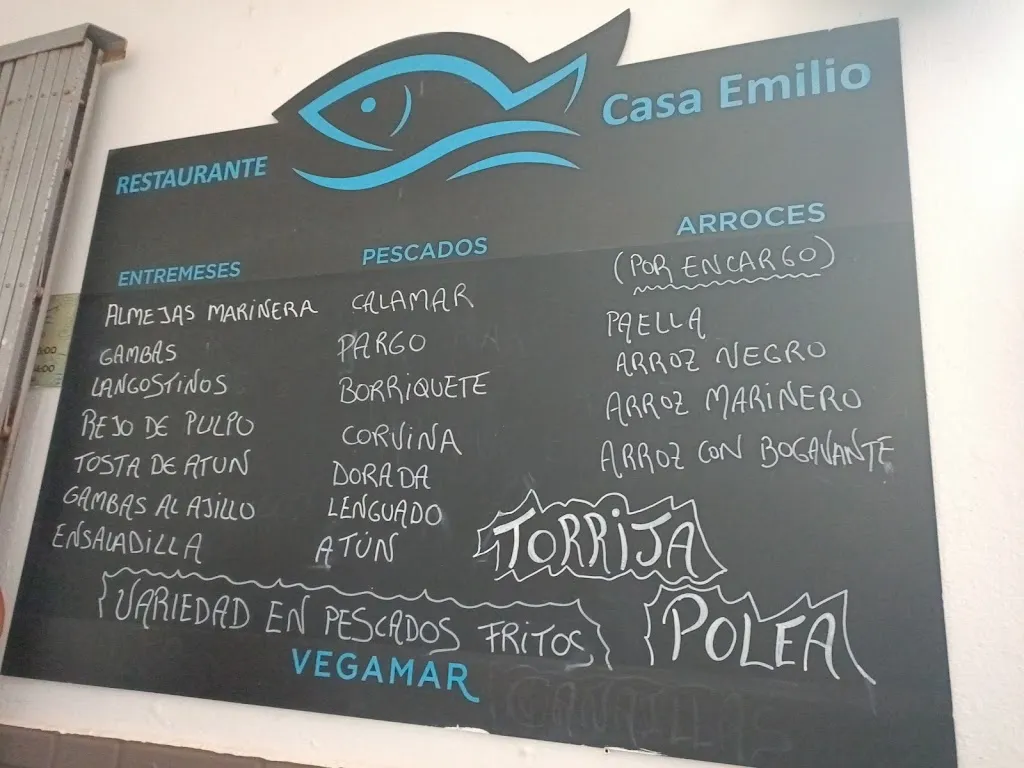 RESTAURANTE
Casa Emilio
ENTREMESES
ALMEJAS MARINERA
GAMBAS
LANGOSTINOS
REJO DE PULPO
TOSTA DE ATUN
GAMBAS AL AJILLO
ENSALADILLA
PESCADOS
CALAMAR
PARGO
BORRIQUETE
CORVINA
DORADA
LENGUADO
ATÚN
ARROCES
(POR ENCARGO)
PAELLA
ARROZ NEGRO
ARROZ MARINERO
ARROZ CON BOGAVANTE
TORRIJA
VARIEDAD EN PESCADOS FRITOS
POLEA
VEGAMAR